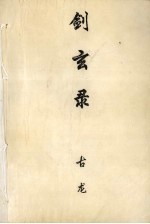 剑玄录
古龙